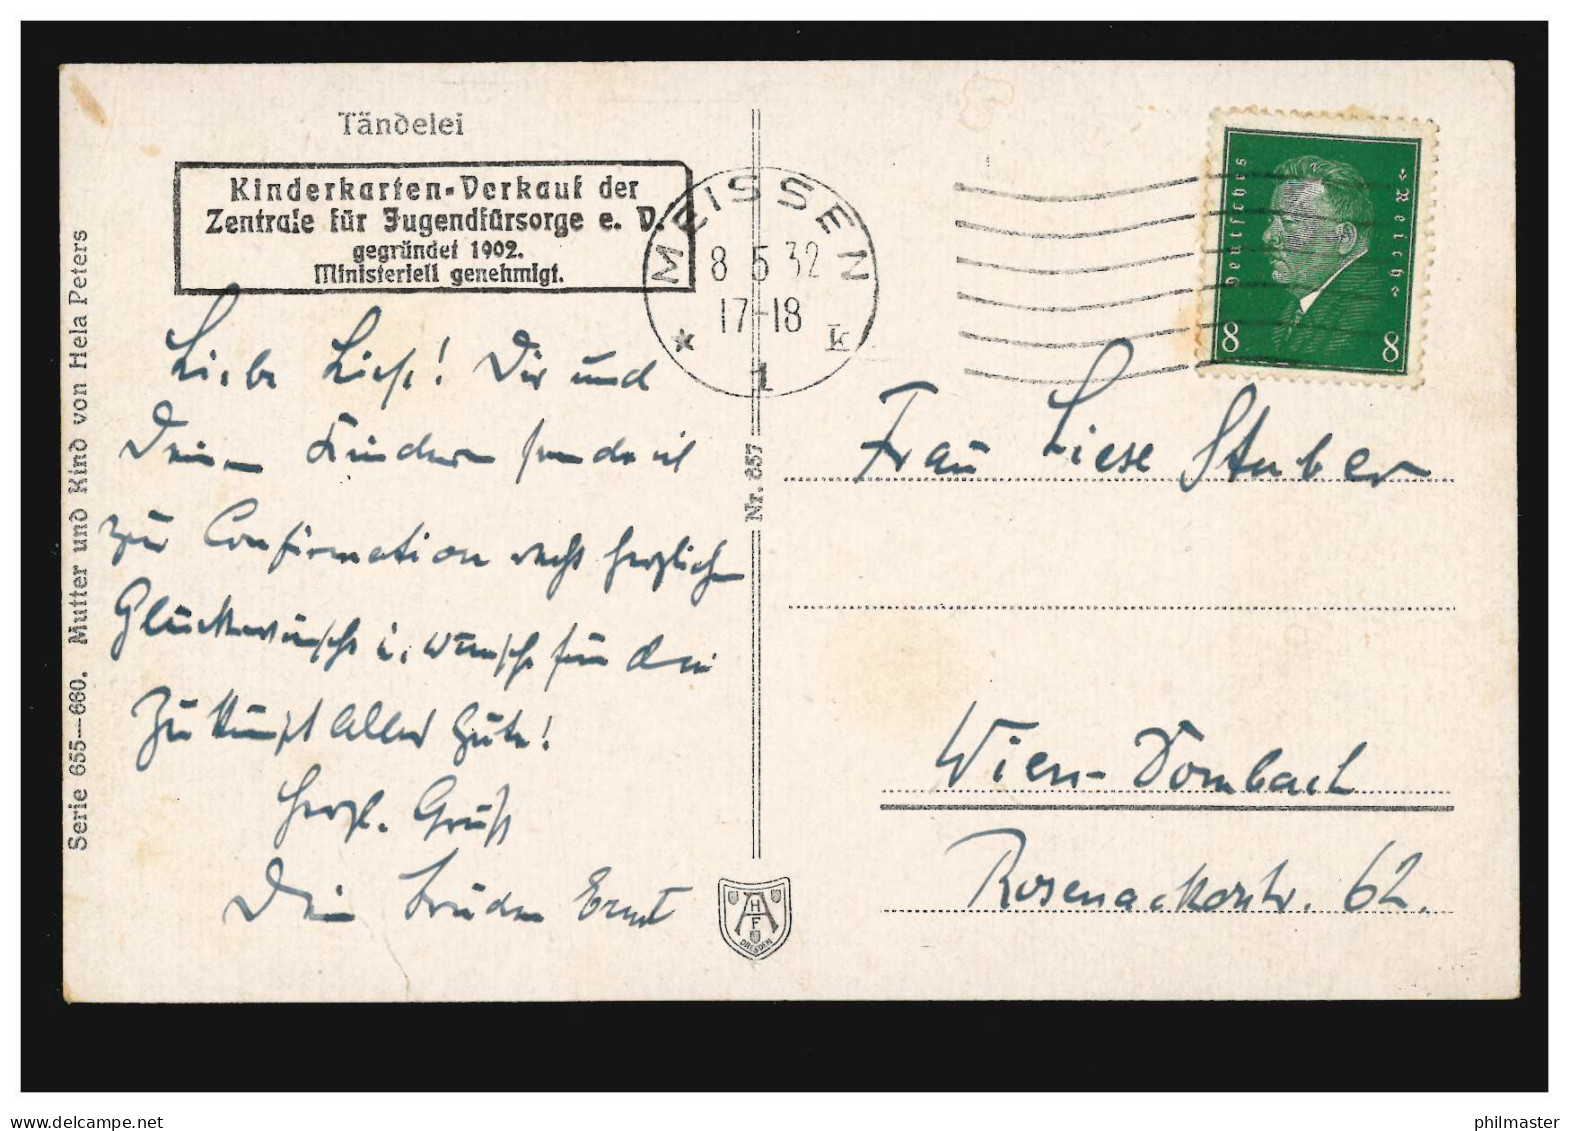 Tändelei
Kinderkarten-Verkauf der
Zentrale für Jugendfürsorge e. V.
gegründet 1902.
Ministeriell genehmigt.
MEISSEN
8 5 32
17-18
* k
1
Deutsches
Reich
8 8
Serie 655—660. Mutter und Kind von Hela Peters
Nr. 657
Liebe Liese! Dir und
Deinen Kindern sende ich
zur Confirmation recht herzliche
Glückwünsche u. wünsche für die
Zukunft alles Gute!
Herzl. Gruß
Dein Bruder Ernst
Frau Liese Stuber
Wien-Dornbach
Rosenackerstr. 62.
H
A
F
DRESDEN
www.delcampe.net
philmaster